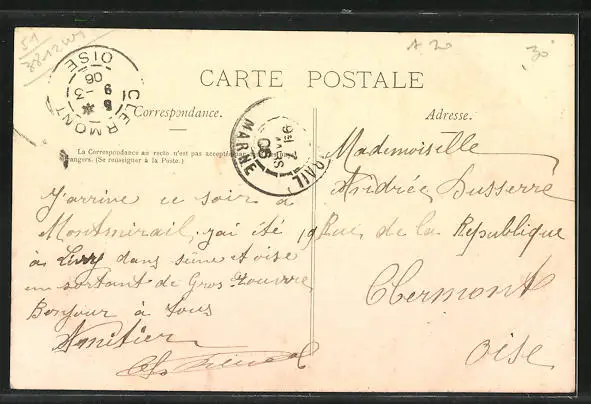 51
3812W1
CLERMONT OISE
3
9
06
CARTE POSTALE
Correspondance.
Adresse.
La Correspondance au recto n'est pas acceptée
étrangers. (Se renseigner à la Poste.)
RAIL MARNE
2
MARS
06
Mademoiselle
Andrée Dusserre
19 Rue de la Republique
Clermont
Oise
J'arrive ce soir à
Montmirail, j'ai été
à Livry dans seine et oise
en sortant de Gros Rouvre
Bonjour à tous
Amitier